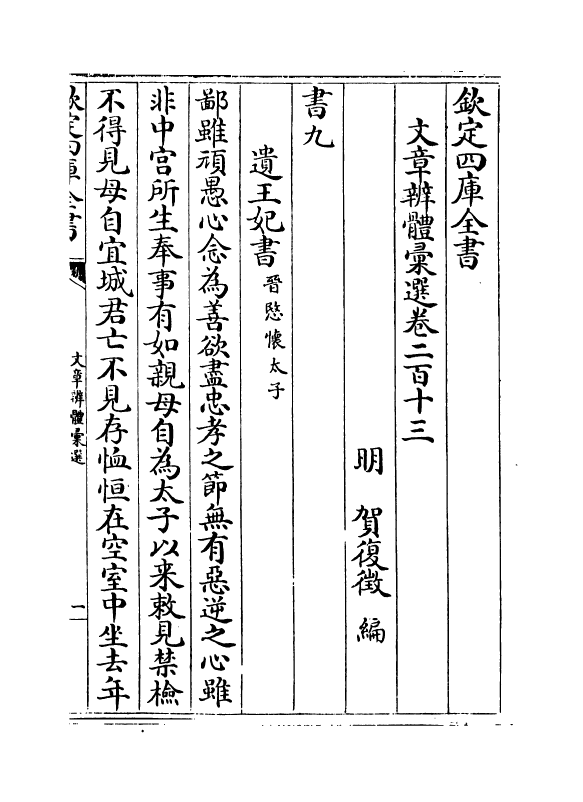 欽定四庫全書
文章辨體彚選卷二百十三
明　賀復徵　編
書九
遺王妃書晉愍懷太子
鄙雖頑愚心念為善欲盡忠孝之節無有惡逆之心雖
非中宫所生奉事有如親母自為太子以来敕見禁檢
不得見母自宜城君亡不見存恤恒在空室中坐去年
欽定四庫全書
文章辨體彚選
一